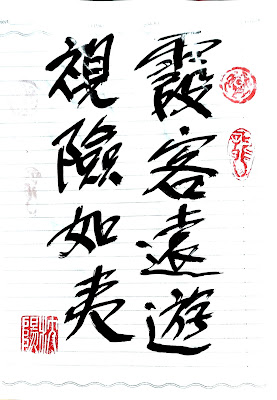 霞客遠遊
視險如夷